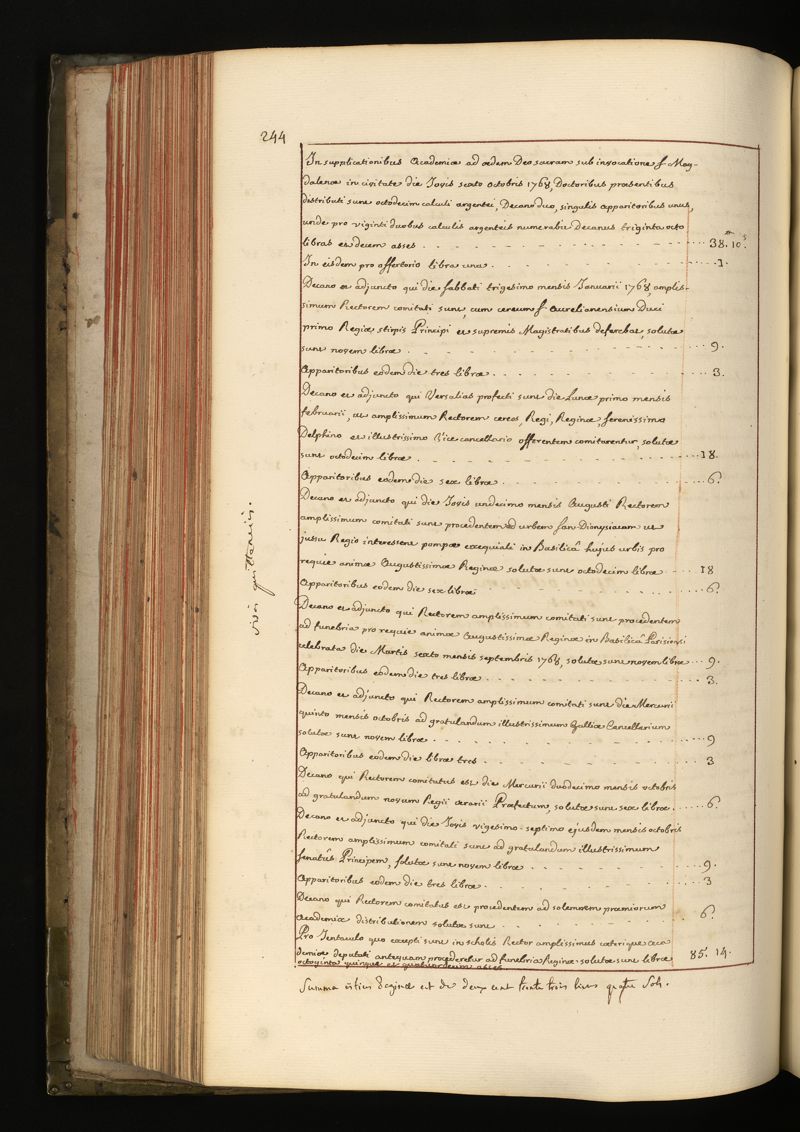 244
In supplicationibus Academiæ ad ædem Deo sacram sub invocatione s. Mag-
dalenæ in civitate die Jovis sexto octobris 1768, Doctoribus præsentibus
distributi sunt octodecim calculi argentei, Decano duo, singulis apparitoribus unus,
unde pro viginti duobus calculis argenteis numeravit Decanus triginta octo
libras et decem asses . . . 38.lt 10.s
In eisdem pro offertorio libra una . . . 1.
Decano et adjuncto qui die sabbati trigesimo mensis Januarii 1768, amplis-
simum Rectorem comitati sunt, cum cereum s. Aurelianensium Duci
primo Regiæ stirpis Principi et supremis Magistratibus deferebat, solutæ
sunt novem libræ . . . 9.
Apparitoribus eodem die tres libræ . . . 3.
Decano et adjuncto qui Versalias profecti sunt die Lunæ primo mensis
februarii, ut amplissimum Rectorem cereos, Regi, Reginæ, serenissimo
Delphino et illustrissimo Vice cancellario offerentem comitarentur, solutæ
sunt octodecim libræ . . . 18.
Apparitoribus eodem die sex libræ . . . 6.
Decano et adjuncto qui die Jovis undecimo mensis Augusti Rectorem
amplissimum comitati sunt procedentem ad urbem san-Dionysiacam ut
jussu Regio interessent pompæ exequiali in Basilicâ hujus urbis pro
requie animæ Augustissimæ Reginæ solutæ sunt octodecim libræ . . . 18
Apparitoribus eodem die sex libræ . . . 6.
Decano et adjuncto qui Rectorem amplissimum comitati sunt procedentem
ad funebria pro requie animæ Augustissimæ Reginæ in Basilicâ Parisiensi
celebrata die Martis sexto mensis septembris 1768, solutæ sunt novem libræ . . . 9.
Apparitoribus eodem die tres libræ . . . 3.
Decano et adjuncto qui Rectorem amplissimum comitati sunt die Mercurii
quinto mensis octobris ad gratulandum illustrissimum Galliæ Cancellarium
solutæ sunt novem libræ . . . 9
Apparitoribus eodem die libræ tres . . . 3
Decano qui Rectorem comitatus est die Mercurii duodecimo mensis octobris
ad gratulandum novum Regii ærarii Præfectum, solutæ sunt sex libræ . . . 6.
Decano et adjuncto qui die Jovis vigesimo-septimo ejusdem mensis octobris
Rectorem amplissimum comitati sunt ad gratulandum illustrissimum
senatûs Principem, solutæ sunt novem libræ . . . 9.
Apparitoribus eodem die tres libræ . . . 3
Decano qui Rectorem comitatus est procedentem ad solemnem præmiorum
Academiæ distributionem solutæ sunt . . . 6.
Pro Jentaculo quo excepti sunt in scholis Rector amplissimus cæterique Aca-
demiæ deputati antequam procederetur ad funebria Reginæ solutæ sunt libræ
octoginta quinque et quatuordecim asses 85. 14.
Summa istius paginæ est de deux cent trente trois livres quatre sols.
visis quittanciis.